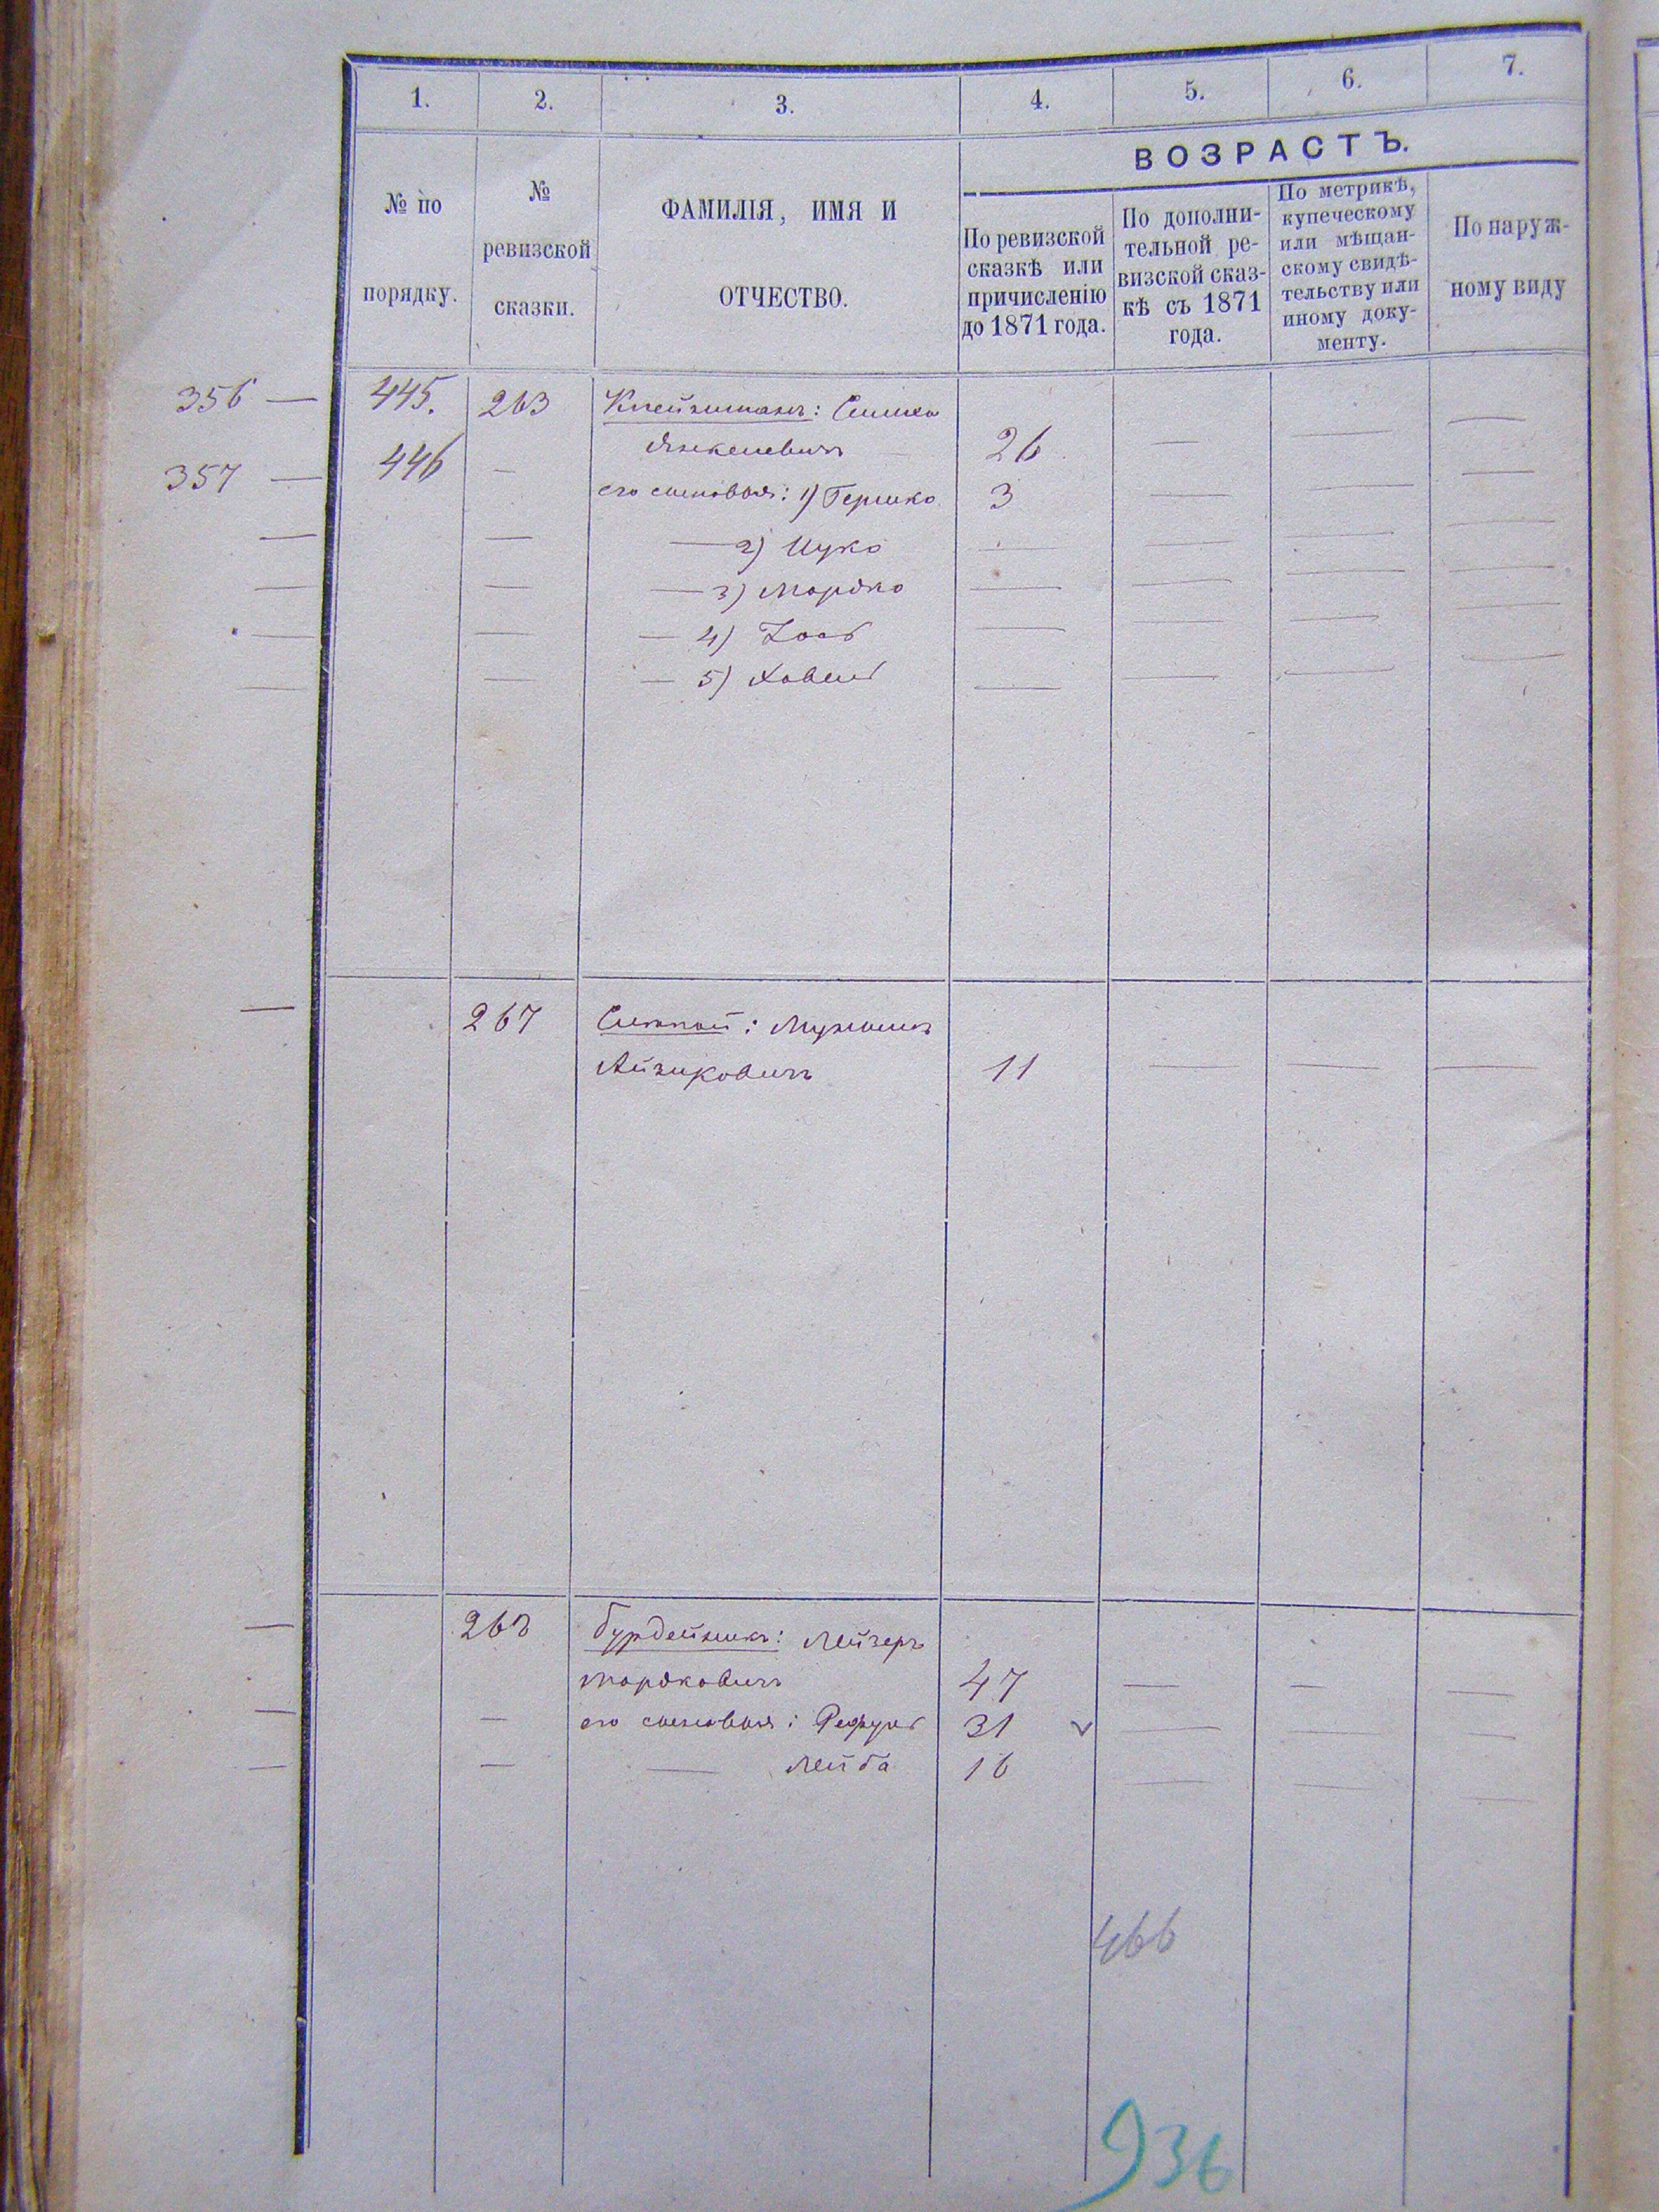 1. 2. 3. 4. 5. 6. 7.
ВОЗРАСТЪ.
№ по
порядку.
№
ревизской
сказки.
ФАМИЛІЯ, ИМЯ И
ОТЧЕСТВО.
По ревизской
сказкѣ или
причисленію
до 1871 года.
По дополни-
тельной ре-
визской сказ-
кѣ съ 1871
года.
По метрикѣ,
купеческому
или мѣщан-
скому свидѣ-
тельству или
иному доку-
менту.
По наруж-
ному виду
356 — 445. 263 Клейнманъ: Симха
Янкелевичъ 26 — — —
357 — 446 — его сыновья: 1) Гершко 3 — — —
— — — 2) Ицко — — — —
— — — 3) Мордко — — — —
— — — 4) — — — —
— — — 5) — — — —
— 267
Айзиковичъ 11 — — —
— 268 Бурдейникъ: Лейзеръ
Мордковичъ 47 — — —
— — его сыновья: Рефуль 31 — — —
— — — Лейба 16 — — —
466
936